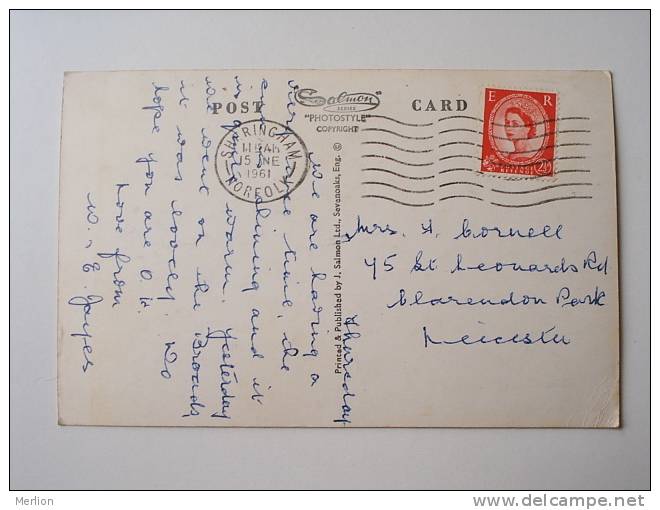 POST CARD
Salmon
SERIES
"PHOTOSTYLE"
COPYRIGHT
SHERINGHAM
NORFOLK
15 JNE
1961
E R
REVENUE
Printed & Published by J. Salmon Ltd., Sevenoaks, Eng. ©
Thursday
We are having a
very nice time, the
sun is shining and it
is quite warm. Yesterday
we went on the Broads,
it was lovely. Do
hope you are O.K.
Love from
W. & E. Jayes
Mrs. A. Cornell
45 St Leonards Rd
Clarendon Park
Leicester
Merlion
www.delcampe.net